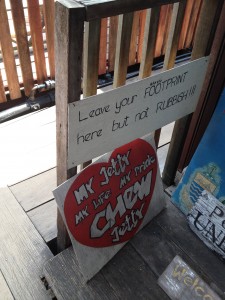 Leave your FOOTPRINT
here but not RUBBISH!!!
My Jetty
My Life My Pride
CHEW
Jetty